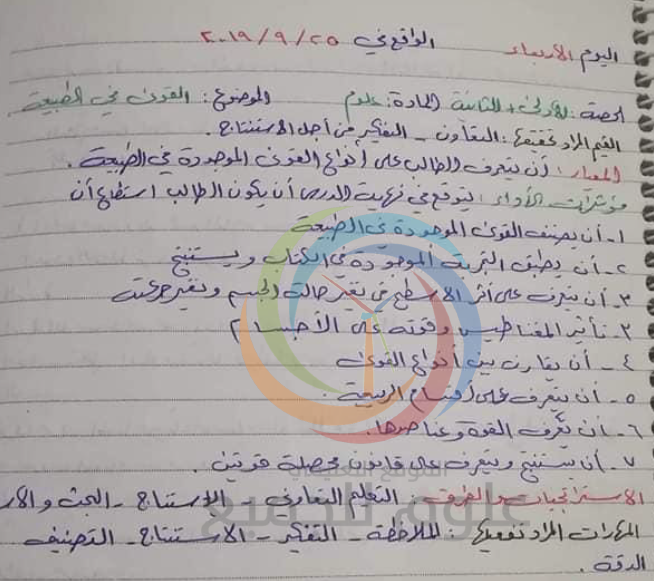 اليوم الأربعاء الواقع في ٢٥ / ٩ / ٢٠١٩
الحصة: الأولى + الثانية المادة: علوم الموضوع: القوى في الطبيعة
القيم المراد تحقيقها: التعاون - التفكير من أجل الاستنتاج.
المعيار: أن يتعرف الطالب على أنواع القوى الموجودة في الطبيعة.
مؤشرات الأداء: يتوقع في نهاية الدرس أن يكون الطالب استطاع أن
١- أن يصنف القوى الموجودة في الطبيعة
٢- أن يطبق التجربة الموجودة في الكتاب ويستنتج
٣- أن يتعرف على أثر الأسطح في تغير حالة الجسم وتغير حركته
٣- تأثير المغناطيس وقوته على الأجسام
٤- أن يقارن بين أنواع القوى
٥- أن يتعرف على أقسام الربيعة.
٦- أن يعرف القوة وعناصرها.
٧- أن يستنتج ويتعرف على قانون محصلة قوتين.
الموقع التعليمي
الاستراتيجيات والطرق: التعلم التعاوني - الاستنتاج - البحث و
علوم للجميع
المهارات المراد تفعيلها: الملاحظة - التفكير - الاستنتاج - التصنيف
الدقة.